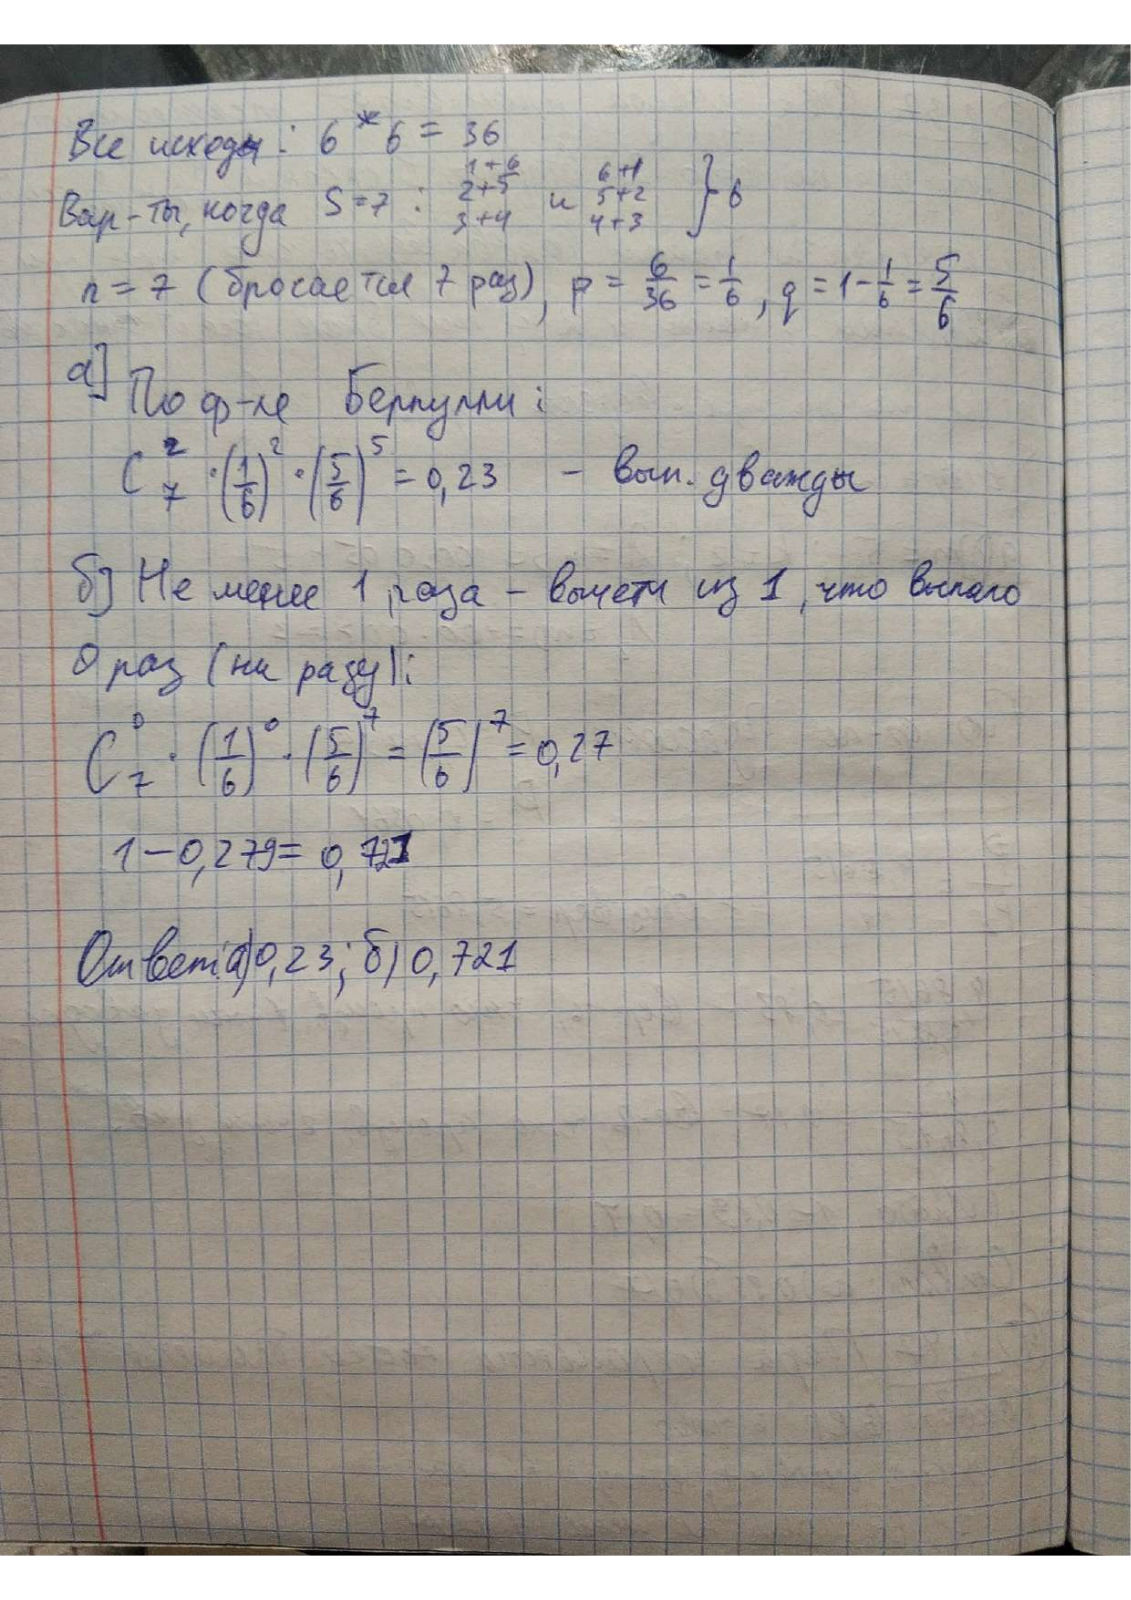 Все исходы: 6 * 6 = 36
Вар-ты, когда S=7: 1+6 2+5 3+4 и 6+1 5+2 4+3 } 6
n = 7 (бросается 7 раз), p = 6/36 = 1/6, q = 1 - 1/6 = 5/6
а] По ф-ле Бернулли:
C₇² · (1/6)² · (5/6)⁵ = 0,23 - вып. дважды
б] Не менее 1 раза - вычесть из 1, что выпало
0 раз (ни разу):
C₇⁰ · (1/6)⁰ · (5/6)⁷ = (5/6)⁷ = 0,27
1 - 0,279 = 0,721
Ответ: а) 0,23; б) 0,721